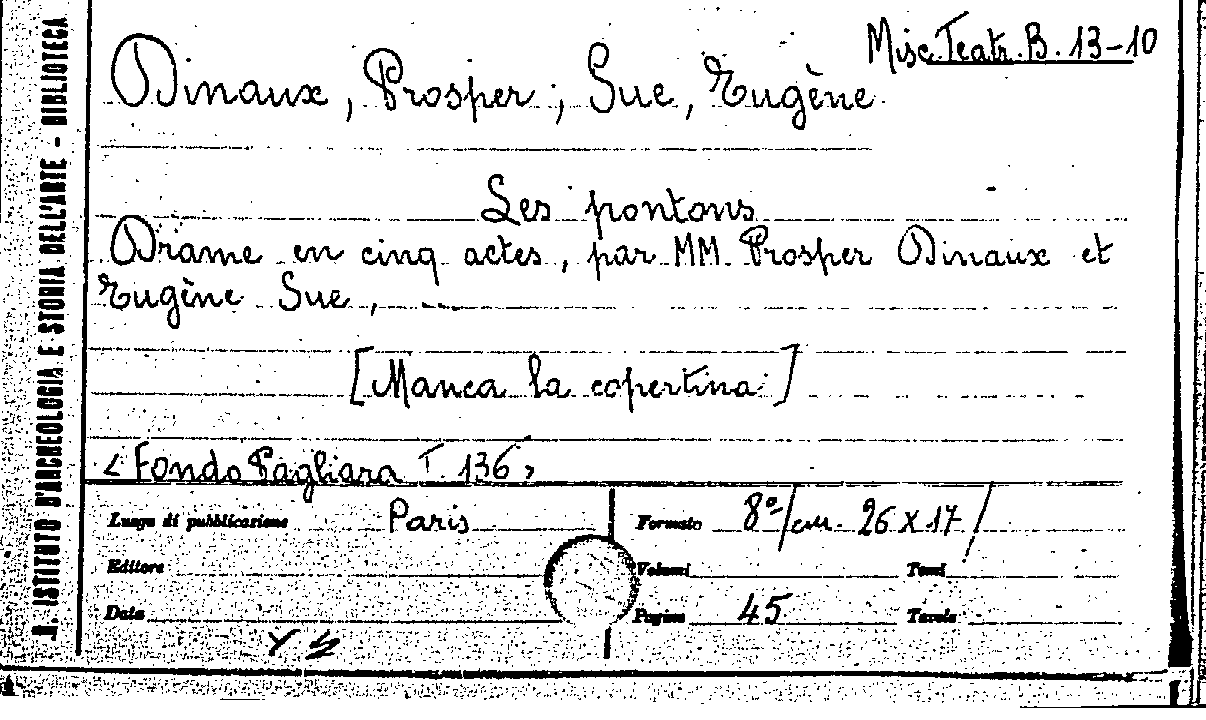 Misc. Teatr. B. 13-10
Dinaux, Prosper; Sue, Eugène
Les pontons
Drame en cinq actes, par MM. Prosper Dinaux et
Eugène Sue, ...
[Manca la copertina]
<Fondo Pagliara T. 136>
Luogo di pubblicazione Paris
Editore
Data
Formato 8º/cm. 26 X 17/
Volumi Tomi
Pagine 45 Tavole
R. ISTITUTO D'ARCHEOLOGIA E STORIA DELL'ARTE - BIBLIOTECA